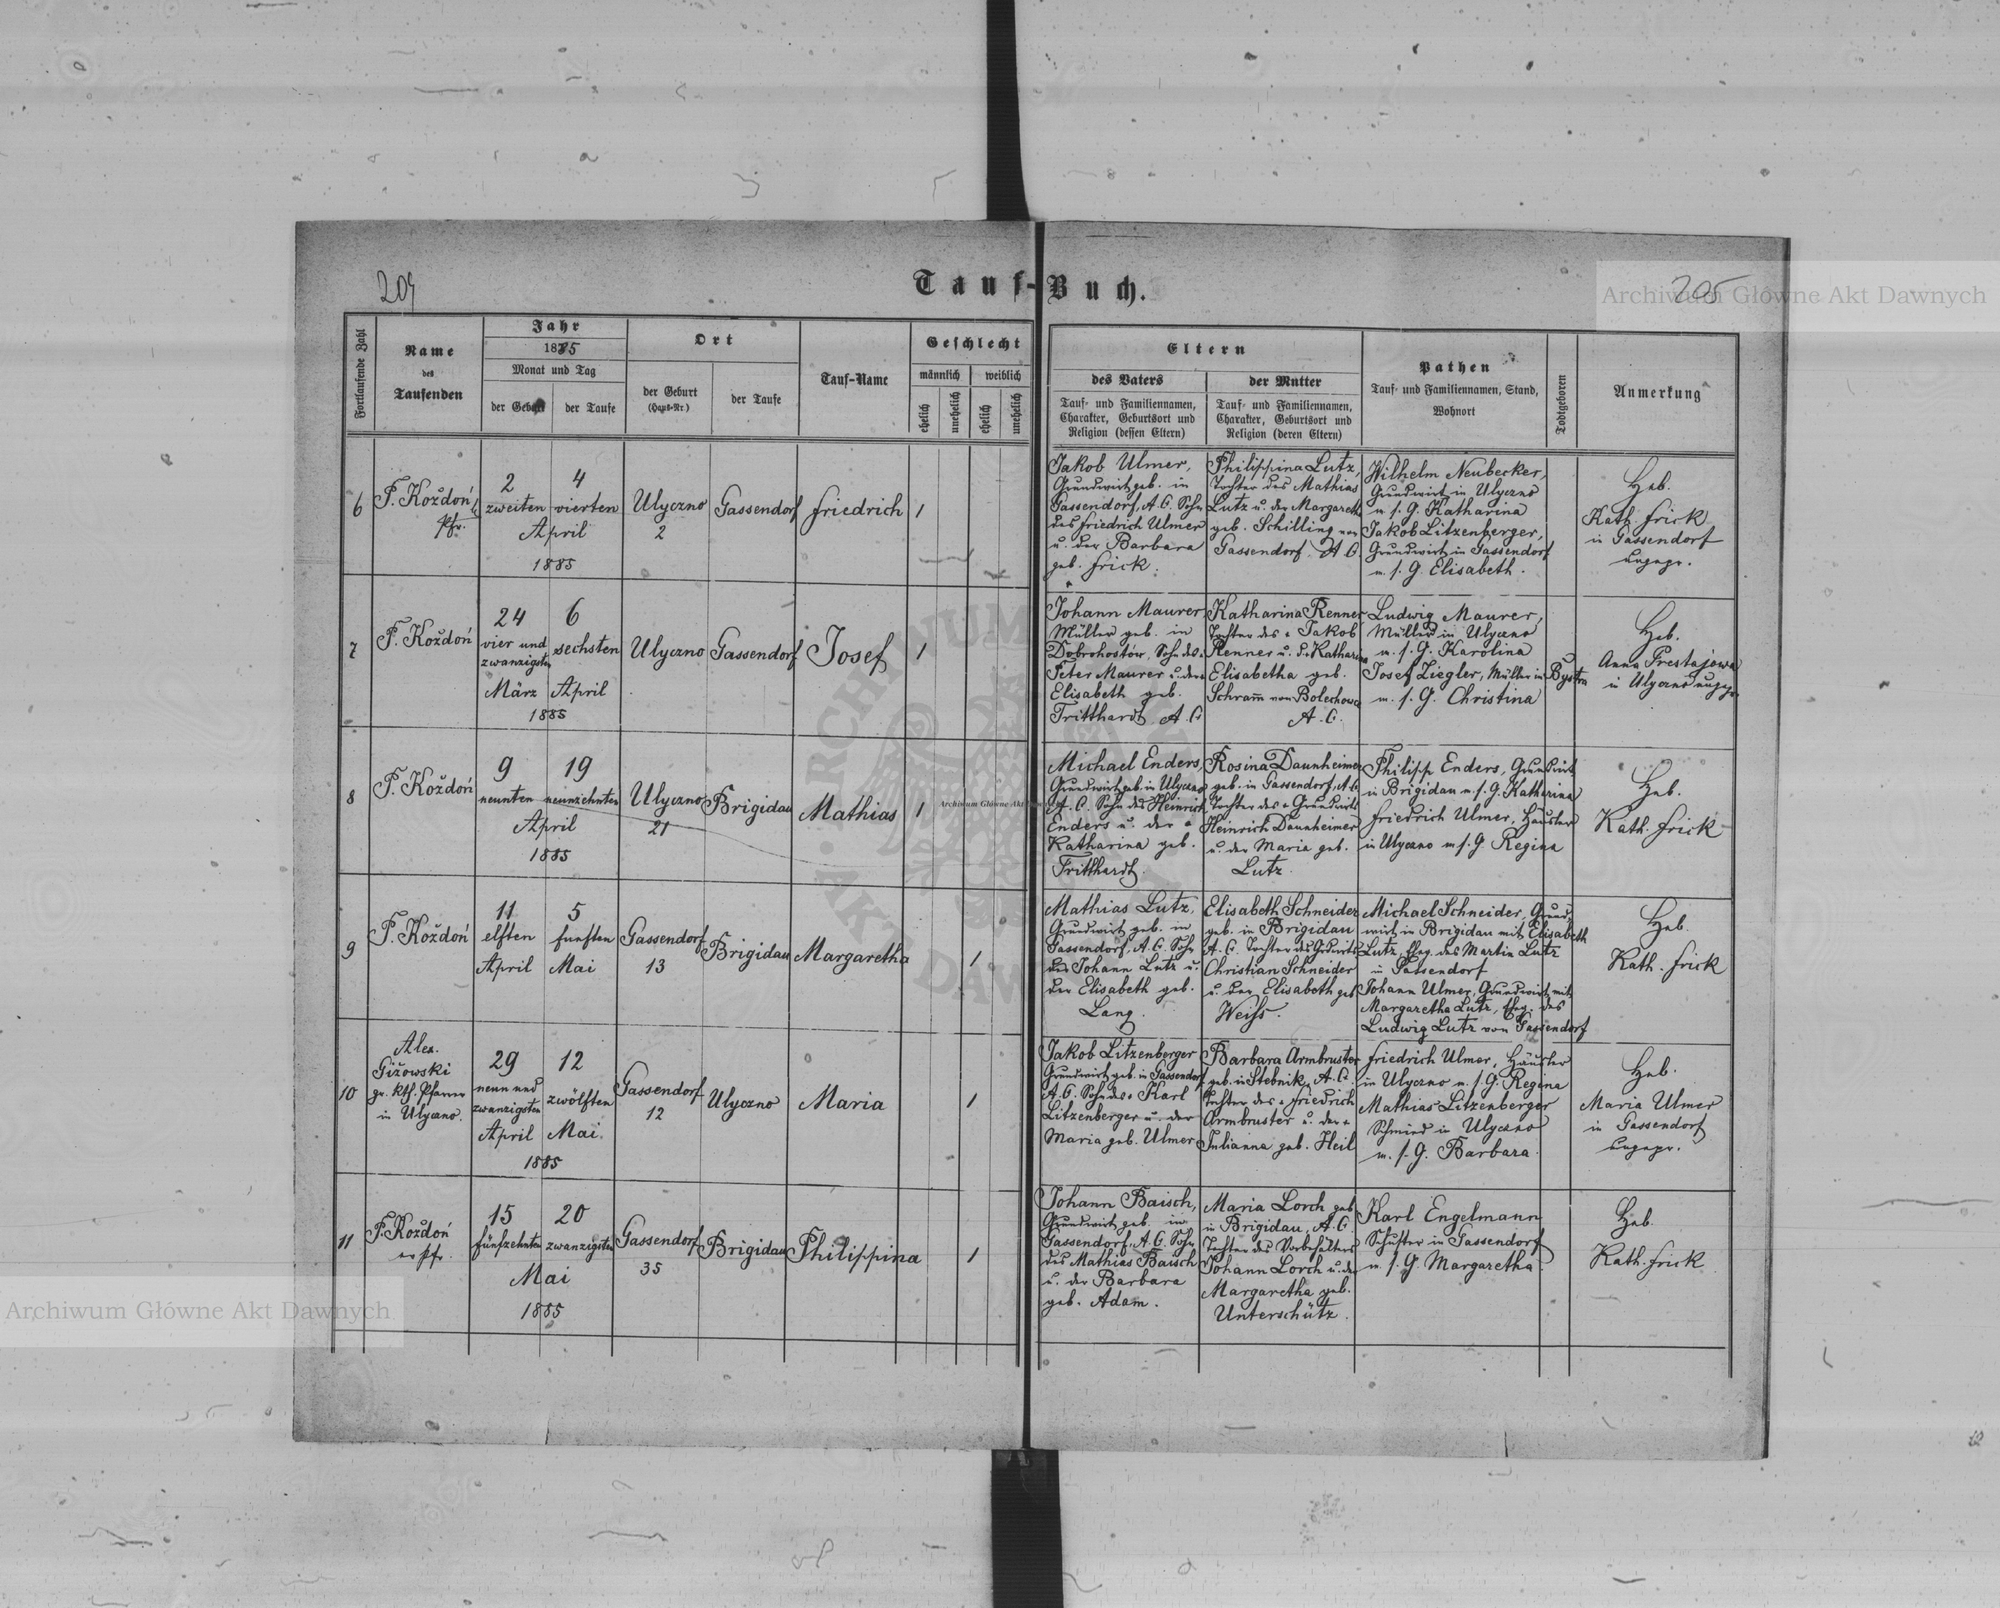 204
Tauf-Buch.
205
Archiwum Główne Akt Dawnych
Fortlaufende Zahl
Name
des
Taufenden
Jahr
1885
Monat und Tag
der Geburt
der Taufe
Ort
der Geburt
(Haus-Nr.)
der Taufe
Tauf-Name
Geschlecht
männlich
weiblich
ehelich
unehelich
ehelich
unehelich
Eltern
des Vaters
Tauf- und Familiennamen,
Charakter, Geburtsort und
Religion (dessen Eltern)
der Mutter
Tauf- und Familiennamen,
Charakter, Geburtsort und
Religion (deren Eltern)
Pathen
Tauf- und Familiennamen, Stand,
Wohnort
Todtgeboren
Anmerkung
6
P. Kożdoń
Pfr.
2
zweiten
4
vierten
April
1885
Ulyczno
2
Gassendorf
Friedrich
1
Jakob Ulmer,
Grundwirt geb. in
Gassendorf, A.C. Sohn
des Friedrich Ulmer
u. der Barbara
geb. Frick.
Philippina Lutz,
Tochter des Mathias
Lutz u. der Margareth
geb. Schilling von
Gassendorf. A C.
Wilhelm Neubecker,
Grundwirt in Ulyczno
m s. G. Katharina
Jakob Litzenberger,
Grundwirt in Gassendorf
m. s. G. Elisabeth.
Heb.
Kath. Frick
in Gassendorf
ungepr.
7
P. Kożdoń
24
vier und
zwanzigsten
März
6
sechsten
April
1885
Ulyczno
Gassendorf
Josef
1
Johann Maurer
Müller geb. in
Dobrohostów, Sohn des
Peter Maurer u. der
Elisabeth geb.
Tritthardt, A.C.
Katharina Renner
Tochter des + Jakob
Renner u. d. Katharina
Elisabetha geb.
Schram̄ von Bolechow
A.C.
Ludwig Maurer,
Müller in Ulyczno
m. s. G. Karolina
Josef Ziegler, Müller in Bystra
m. s. G. Christina
Heb.
Anna Prestajowa
in Ulyczno ungepr.
8
P. Kożdoń
9
neunten
19
neunzehnten
April
1885
Ulyczno
21
Brigidau
Mathias
1
Michael Enders,
Grundwirt geb. in Ulyczno
A. C. Sohn des Heinrich
Enders u. der +
Katharina geb.
Tritthardt.
Rosina Daunheimer
geb. in Gassendorf, A.C.
Tochter des + Grundwirts
Heinrich Daunheimer
u. der Maria geb.
Lutz.
Philipp Enders, Grundwirt
in Brigidau m. s. G. Katharina
Friedrich Ulmer, Häusler
in Ulyczno m s. G Regina
Heb.
Kath. Frick
9
P. Kożdoń
11
elften
April
5
funften
Mai
Gassendorf
13
Brigidau
Margaretha
1
Mathias Lutz,
Grundwirt geb. in
Gassendorf, A.C. Sohn
des Johann Lutz u.
der Elisabeth geb.
Lang.
Elisabeth Schneider
geb. in Brigidau
A. C. Tochter des Grdwirts
Christian Schneider
u. der Elisabeth geb
Weiss.
Michael Schneider, Grund-
wirt in Brigidau mit Elisabeth
Lutz, Eheg. des Martin Lutz
in Gassendorf
Johann Ulmer, Grundwirt mit
Margaretha Lutz, Eheg. des
Ludwig Lutz von Gassendorf
Heb.
Kath. Frick
10
Alex.
Giżowski
gr. kth. Pfarrer
in Ulyczno.
29
neun und
zwanzigsten
April
12
zwölften
Mai.
1885
Gassendorf
12
Ulyczno
Maria
1
Jakob Litzenberger
Grundwirt geb. in Gassendorf
A.C. Sohn des + Karl
Litzenberger u. der
Maria geb. Ulmer
Barbara Armbruster
geb. in Stebnik, A.C.
Tochter des + Friedrich
Armbruster u. der +
Julianna geb. Heil
Friedrich Ulmer, Häusler
in Ulyczno m. s. G. Regina
Mathias Litzenberger
Schmied in Ulyczno
m. s. G. Barbara.
Heb.
Maria Ulmer
in Gassendorf
ungepr.
11
P. Kożdoń
15
fünfzehnten
20
zwanzigsten
Mai
1885
Gassendorf
35
Brigidau
Philippina
1
Johann Baisch,
Grundwirt geb. in
Gassendorf, A.C. Sohn
des Mathias Baisch
u. der Barbara
geb. Adam.
Maria Lorch geb
in Brigidau, A.C
Tochter des Vorbehalters
Johann Lorch u. der
Margaretha geb.
Unterschütz.
Karl Engelmann
Schuster in Gassendorf
m. s. G. Margaretha
Heb.
Kath. Frick
Archiwum Główne Akt Dawnych
12